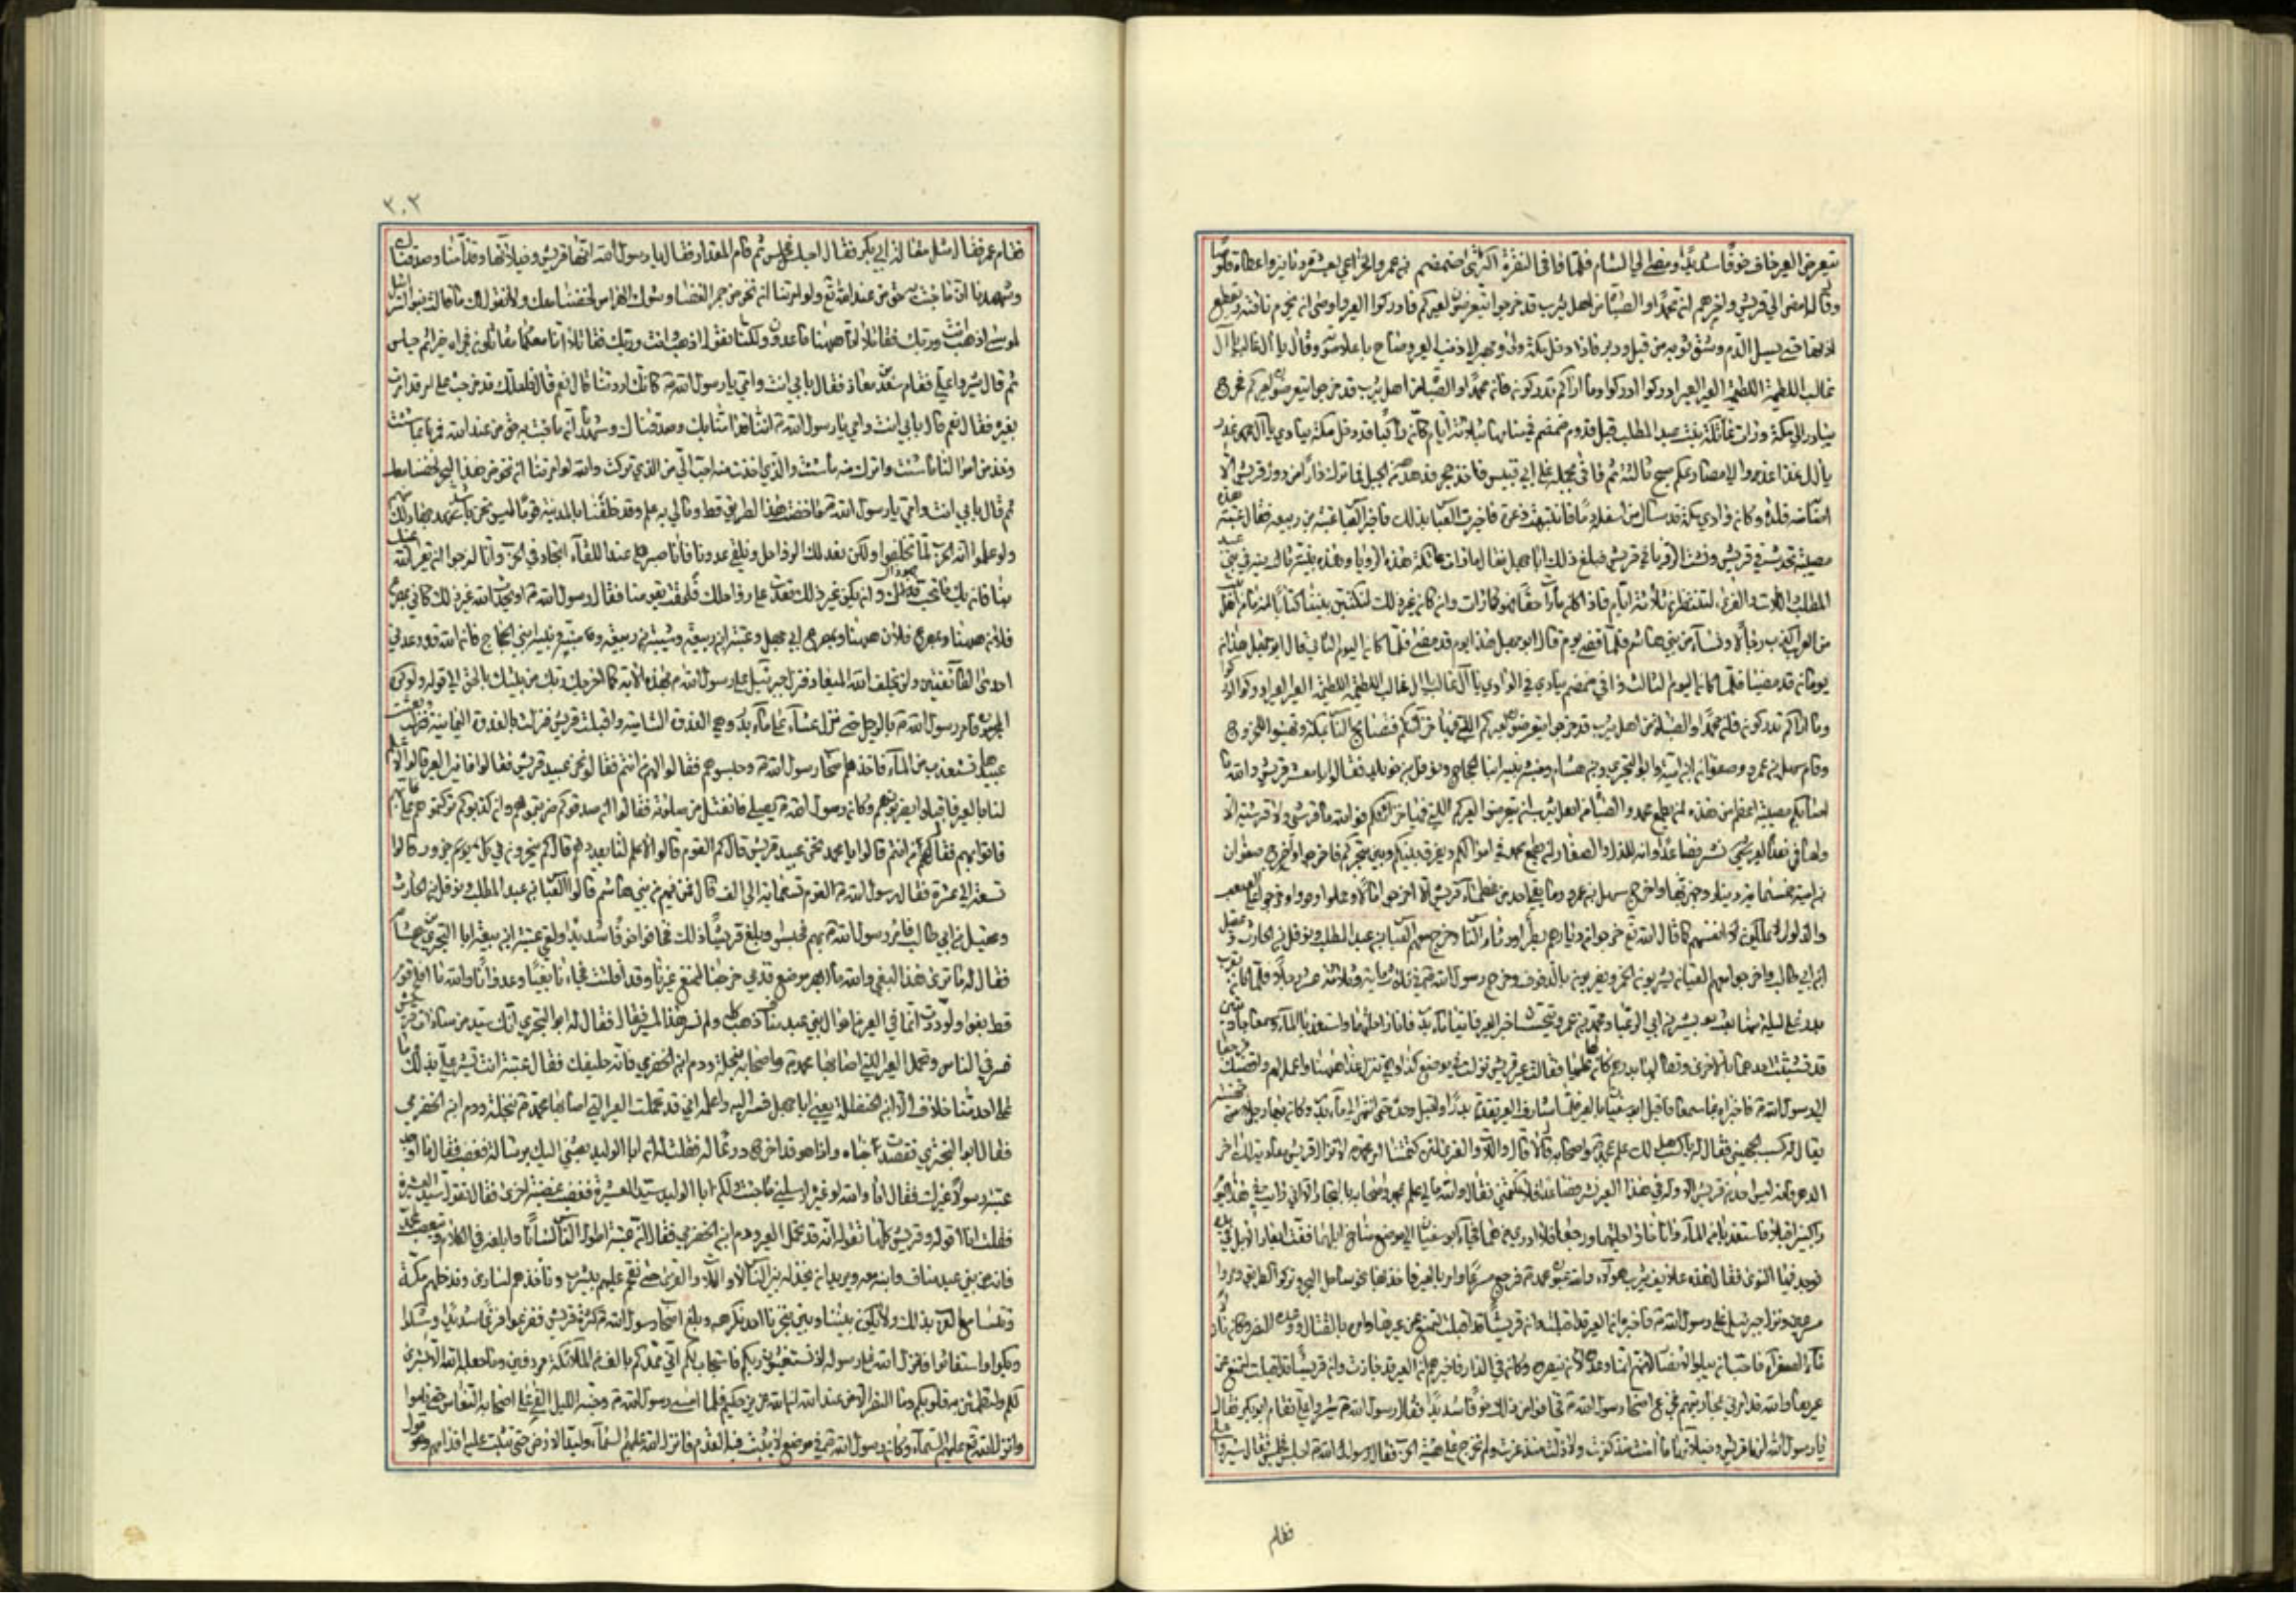 يتعرض العير خاف خوفا شديدا ومضى الى الشام فلما وافى النقرة اكترى ضمضم بن عمرو الخزاعي بعشرة دنانير واعطاه قلوصا
وقال له امض الى قريش واخبرهم ان محمدا والصباة من اهل يثرب قد خرجوا يتعرضون لعيركم فادركوا العير واوصى ان يخرم ناقته ويقطع
اذنها حتى يسيل الدم ويشق ثوبه من قبل ودبر فاذا دخل مكة ولى وجهه الى ذنب البعير وصاح باعلا صوته وقال يا آل غالب يا آل
غالب اللطيمة اللطيمة العير العير ادركوا ادركوا وما اراكم تدركون فان محمدا والصباة من اهل يثرب قد خرجوا يتعرضون لعيركم فخرج
يبادر الى مكة ورات عاتكة بنت عبد المطلب قبل قدوم ضمضم في منامها بثلاثة ايام كان راكبا قد دخل مكة ينادي يا آل غدر
يا آل غدر اغدوا الى مصارعكم صبح ثالثة ثم وافى بجمله على ابي قبيس فاخذ حجرا فدهدهه من الجبل فما ترك دارا من دور قريش الا
اصابته فلذة وكان وادي مكة قد سال من اسفله دما فانتبهت ذعرة فاخبرت العباس بذلك فاخبر العباس عتبة بن ربيعة فقال عتبة هذه
مصيبة تحدث في قريش وفشت الرؤيا في قريش فبلغ ذلك ابا جهل فقال ما رات عاتكة هذه الرؤيا وهذه نبية ثانية في بني عبد
المطلب واللات والعزى لننتظرن ثلاثة ايام فاذا كان ما رات حقا فهو كما رات وان كان غير ذلك لنكتبن بيننا كتابا انه ما من اهل بيت
من العرب اكذب رجالا ولا نساء من بني هاشم فلما مضى يوم قال ابو جهل هذا يوم قد مضى فلما كان اليوم الثاني قال ابو جهل هذان
يومان قد مضيا فلما كان اليوم الثالث وافى ضمضم ينادي في الوادي يا آل غالب يا آل غالب اللطيمة اللطيمة العير العير ادركوا ادركوا
وما اراكم تدركون فان محمدا والصباة من اهل يثرب قد خرجوا يتعرضون لعيركم التي فيها خزائنكم فتصايح الناس بمكة وتهيئوا للخروج
وقام سهيل بن عمرو وصفوان بن امية وابو البختري بن هشام ومنبه ونبيه ابنا الحجاج ونوفل بن خويلد فقالوا يا معشر قريش والله ما
اصابكم مصيبة اعظم من هذه ان يطمع محمد والصباة من اهل يثرب ان يتعرضوا لعيركم التي فيها خزائنكم فوالله ما قرشي ولا قرشية الا
ولها في هذا العير نش فصاعدا وانه للذل والصغار ان يطمع محمد في اموالكم ويفرق بينكم وبين متجركم فاخرجوا واخرج صفوان
بن امية خمسمائة دينار وجهز بها واخرج سهيل بن عمرو وما بقي احد من عظماء قريش الا اخرجوا مالا وحملوا وقووا وخرجوا على الصعب
والذلول لا يملكون انفسهم كما قال الله تع خرجوا من ديارهم بطرا ورئاء الناس وخرج معهم العباس بن عبد المطلب ونوفل بن الحارث وعقيل
ابن ابي طالب واخرجوا معهم القيان يشربون الخمر ويضربون بالدفوف وخرج رسول الله ص في ثلثمائة وثلاثة عشر رجلا فلما كان بقرب
بدر على ليلة منها بعث بسبس بن ابي الزغبا ومجدي بن عمرو يتجسسان خبر العير فاتيا ماء بدر فاناخا راحلتهما واستعذبا الماء وسمعا جاريتين
قد تشبثت احدهما بالاخرى وتطالبها بدرهم كان لها عليها فقالت عير قريش نزلت امس في موضع كذا وهي تنزل غدا ههنا واعمل لهم واقضيك فرجعا
الى رسول الله ص فاخبراه بما سمعا فاقبل ابو سفيان بالعير فلما شارف العير تقدم بدرا واقبل وحده حتى انتهى الى ماء بدر وكان بها رجل من جهينة
يقال له كسب الجهني فقال له يا كسب هل لك علم بمحمد واصحابه قال لا قال واللات والعزى لئن كتمتنا امر محمد لا تزال قريش معادية لك اخر
الدهر فانه ليس احد من قريش الا وله في هذا العير نش فصاعدا فلا تكتمني فقال والله ما لي علم بمحمد واصحابه بالتجار الا اني رايت في هذا اليوم
راكبين اقبلا فاستعذبا من الماء واناخا راحلتيهما ورجعا فلا ادري من هما فجاء ابو سفيان الى موضع مناخ ابلهما ففت ابعار الابل بيده
فوجد فيها النوى فقال هذه علائف يثرب هؤلاء والله عيون محمد فرجع مسرعا وامر بالعير فاخذ بها نحو ساحل البحر وتركوا الطريق ومروا
مسرعين ونزل جبرئيل على رسول الله ص فاخبره ان العير قد افلتت وان قريشا قد اقبلت لتمنع عن عيرها وامره بالقتال ووعده النصر وكان نازلا
ماء الصفراء فاحب ان يبلو الانصار لانهم انما وعدوه ان ينصروه وكان في الدار فاخبرهم ان العير قد جازت وان قريشا قد اقبلت لتمنع عن
عيرها وان الله قد امرني بمحاربتهم فجزع اصحاب رسول الله ص من ذلك وخافوا خوفا شديدا فقال رسول الله ص اشيروا علي فقام ابو بكر فقال
يا رسول الله انها قريش وخيلاؤها ما امنت منذ كفرت ولا ذلت منذ عزت ولم نخرج على هيئة الحرب فقال رسول الله ص اجلس فجلس فقال اشيروا علي
فقام
٣٠٣
فقام عمر فقال مثل مقالة ابي بكر فقال اجلس فجلس ثم قام المقداد فقال يا رسول الله انها قريش وخيلاؤها وقد آمنا بك وصدقناك
وشهدنا ان ما جئت به حق من عند الله تع ولو امرتنا ان نخوض جمر الغضا وشوك الهراس لخضنا معك ولا نقول لك ما قالت بنو اسرائيل
لموسى اذهب انت وربك فقاتلا انا ههنا قاعدون ولكنا نقول اذهب انت وربك فقاتلا انا معكما مقاتلون فجزاه خيرا ثم جلس
ثم قال اشيروا علي فقام سعد بن معاذ فقال بابي انت وامي يا رسول الله ص كانك اردتنا قال نعم قال فلعلك قد خرجت على امر قد امرت
بغيره فقال نعم قال بابي انت وامي يا رسول الله ص اننا قد آمنا بك وصدقناك وشهدنا ان ما جئت به حق من عند الله فمرنا بما شئت
وخذ من اموالنا ما شئت واترك منه ما شئت والذي اخذت منه احب الي من الذي تركت والله لو امرتنا ان نخوض هذا البحر لخضنا معك
ثم قال بابي انت وامي يا رسول الله ص ما خضت هذا الطريق قط وما لي به علم وقد خلفنا بالمدينة قوما ليس نحن باشد جهادا لك منهم
ولو علموا انه الحرب لما تخلفوا ولكن نعد لك الرواحل ونلقى عدونا فانا صبر عند اللقاء انجاد في الحرب وانا لنرجوا ان يقر الله عينك
بنا فان يك ما تحب فهو ذاك وان يكن غير ذلك قعدت على رواحلك فلحقت بقومنا فقال رسول الله ص او يحدث الله غير ذلك كاني بمصرع
فلان ههنا وبمصرع فلان ههنا وبمصرع ابي جهل وعتبة بن ربيعة وشيبة بن ربيعة ومنبه ونبيه ابني الحجاج فان الله قد وعدني
احدى الطائفتين ولن يخلف الله الميعاد فنزل جبرئيل على رسول الله ص بهذه الآية كما اخرجك ربك من بيتك بالحق الى قوله ولو كره
المجرمون فامر رسول الله ص بالرحيل حتى نزل عشاء على ماء بدر وهي العدوة الشامية واقبلت قريش فنزلت بالعدوة اليمانية وبعثت
عبيدها تستعذب من الماء فاخذهم اصحاب رسول الله ص وحبسوهم فقالوا لهم من انتم فقالوا نحن عبيد قريش فقالوا فاين العير قالوا لا علم
لنا بالعير فاقبلوا يضربونهم وكان رسول الله ص يصلي فانفتل من صلوته فقال ان صدقوكم ضربتموهم وان كذبوكم تركتموهم علي بهم
فاتوا بهم فقال لهم من انتم قالوا يا محمد نحن عبيد قريش قال كم القوم قالوا لا علم لنا بعددهم قال كم ينحرون في كل يوم جزور قالوا
تسعة الى عشرة فقال رسول الله ص القوم تسعمائة الى الف قال فمن فيهم من بني هاشم قالوا العباس بن عبد المطلب ونوفل بن الحارث
وعقيل بن ابي طالب فامر رسول الله ص بهم فحبسوا وبلغ قريشا ذلك فخافوا خوفا شديدا ولقي عتبة بن ربيعة ابا البختري بن هشام
فقال له ما ترى هذا البغي والله ما ابصر موضع قدمي خرجنا لنمنع عيرنا وقد افلتت فجئنا بغيا وعدوانا والله ما افلح قوم
قط بغوا ولوددت انما في العير من اموال بني عبد مناف ذهب كله ولم نسر هذا المسير فقال له ابو البختري انك سيد من سادات قريش
فسر في الناس وتحمل العير التي اصابها محمد ص واصحابه بنخلة ودم ابن الحضرمي فانه حليفك فقال عتبة انت تشير علي بذلك وما
على احد منا خلاف الا ابن الحنظلة يعني ابا جهل فسر اليه واعلمه اني قد تحملت العير التي اصابها محمد ص بنخلة ودم ابن الحضرمي
فقال ابو البختري فقصدت خباه واذا هو قد اخرج درعا له فقلت له ان ابا الوليد بعثني اليك برسالة فغضب فقال اما وجد
عتبة رسولا غيرك فقال اما والله لو غيره ارسلني ما جئت ولكن ابا الوليد سيد العشيرة فغضب غضبة اخرى فقال تقول سيد العشيرة
فقلت انا اقوله وقريش كلها تقوله انه قد تحمل العير ودم ابن الحضرمي فقال ان عتبة اطول الناس لسانا وابلغه في الكلام ويتعصب لمحمد
فانه من بني عبد مناف وابنه معه ويريد ان يخذله بين الناس لا واللات والعزى حتى نقحم عليهم بيثرب وناخذهم اسارى وندخلهم مكة
وتتسامع العرب بذلك ولا يكون بيننا وبين متجرنا احد نكرهه وبلغ اصحاب رسول الله ص كثرة قريش ففزعوا فزعا شديدا وشكوا
وبكوا واستغاثوا فانزل الله على رسوله اذ تستغيثون ربكم فاستجاب لكم اني ممدكم بالف من الملائكة مردفين وما جعله الله الا بشرى
لكم ولتطمئن به قلوبكم وما النصر الا من عند الله ان الله عزيز حكيم فلما امسى رسول الله ص وجنه الليل القى على اصحابه النعاس حتى ناموا
وانزل الله تع عليهم السماء وكان نزول رسول الله ص في موضع لا يثبت فيه القدم فانزل الله عليهم السماء ولبد الارض حتى تثبت عليه اقدامهم وهو قول